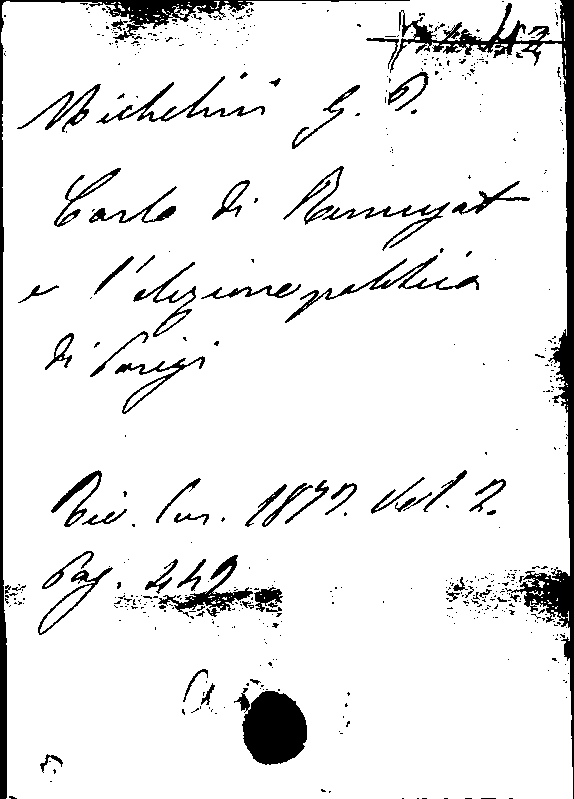 Michelini G. B.
Carlo di Remusat
e l'elezione politica
di Parigi
Riv. Eur. 1877. Vol. 2.
Pag. 449